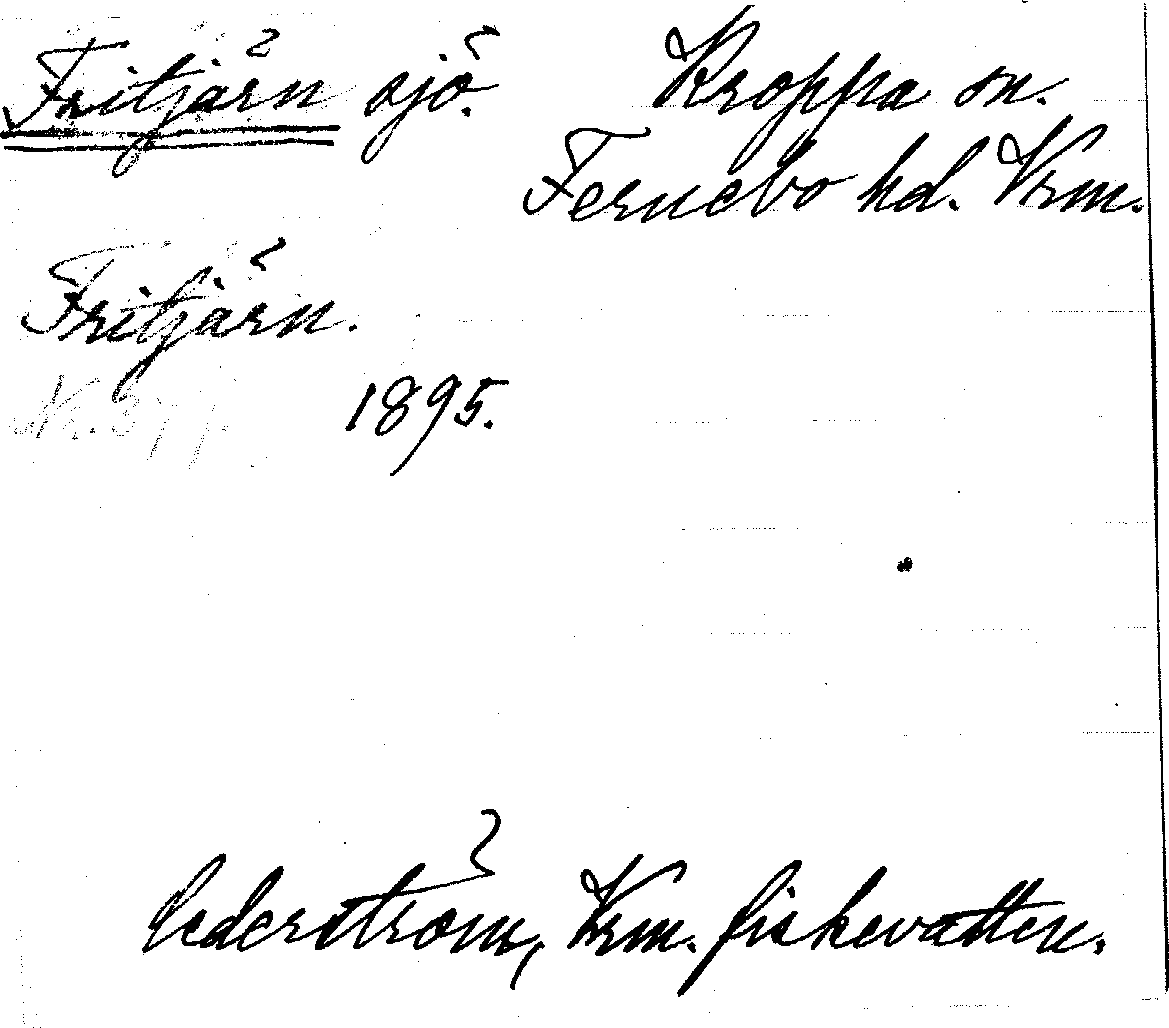 Fritjärn sjö. Kroppa sn.
Fernebo hd. Vrm.
Fritjärn.
Nr. 377. 1895.
Cederström, Vrm. fiskevatten.